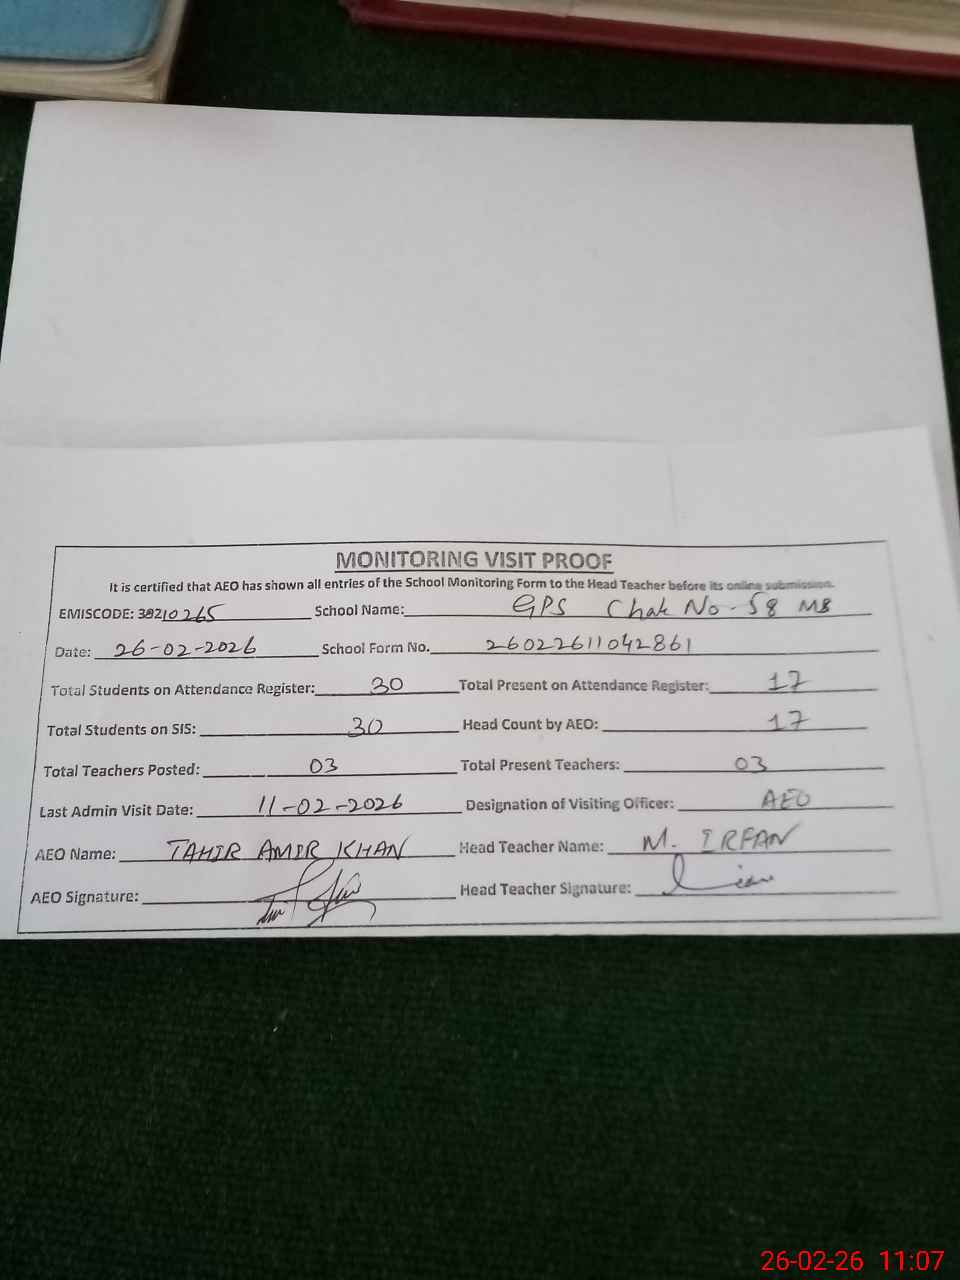 MONITORING VISIT PROOF
It is certified that AEO has shown all entries of the School Monitoring Form to the Head Teacher before its online submission.
EMISCODE: 38210265 School Name: GPS Chak No-58 MB
Date: 26-02-2026 School Form No. 26022611042861
Total Students on Attendance Register: 30 Total Present on Attendance Register: 17
Total Students on SIS: 30 Head Count by AEO: 17
Total Teachers Posted: 03 Total Present Teachers: 03
Last Admin Visit Date: 11-02-2026 Designation of Visiting Officer: AEO
AEO Name: TAHIR AMIR KHAN Head Teacher Name: M. IRFAN
AEO Signature: Head Teacher Signature:
26-02-26 11:07